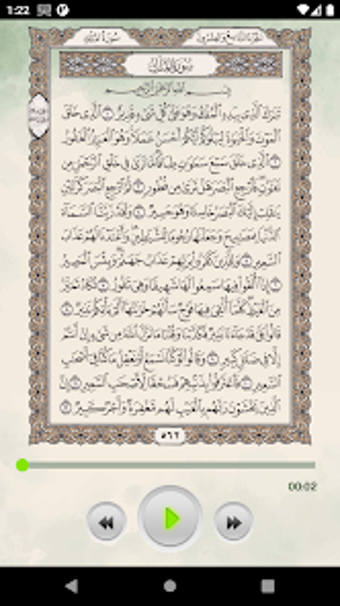 1:22
سُورَةُ المُلْكِ الجُزْءُ التَّاسِعُ وَالعِشْرُونَ
سُورَةُ المُلْكِ
بِسْمِ ٱللَّهِ ٱلرَّحْمَٰنِ ٱلرَّحِيمِ
تَبَٰرَكَ ٱلَّذِي بِيَدِهِ ٱلْمُلْكُ وَهُوَ عَلَىٰ كُلِّ شَيْءٍ قَدِيرٌ ١ ٱلَّذِي خَلَقَ
ٱلْمَوْتَ وَٱلْحَيَوٰةَ لِيَبْلُوَكُمْ أَيُّكُمْ أَحْسَنُ عَمَلًا وَهُوَ ٱلْعَزِيزُ ٱلْغَفُورُ
٢ ٱلَّذِي خَلَقَ سَبْعَ سَمَٰوَٰتٍ طِبَاقًا مَّا تَرَىٰ فِي خَلْقِ ٱلرَّحْمَٰنِ مِن
تَفَٰوُتٍ فَٱرْجِعِ ٱلْبَصَرَ هَلْ تَرَىٰ مِن فُطُورٍ ٣ ثُمَّ ٱرْجِعِ ٱلْبَصَرَ كَرَّتَيْنِ
يَنقَلِبْ إِلَيْكَ ٱلْبَصَرُ خَاسِئًا وَهُوَ حَسِيرٌ ٤ وَلَقَدْ زَيَّنَّا ٱلسَّمَآءَ
ٱلدُّنْيَا بِمَصَٰبِيحَ وَجَعَلْنَٰهَا رُجُومًا لِّلشَّيَٰطِينِ وَأَعْتَدْنَا لَهُمْ عَذَابَ
ٱلسَّعِيرِ ٥ وَلِلَّذِينَ كَفَرُوا۟ بِرَبِّهِمْ عَذَابُ جَهَنَّمَ وَبِئْسَ ٱلْمَصِيرُ
٦ إِذَآ أُلْقُوا۟ فِيهَا سَمِعُوا۟ لَهَا شَهِيقًا وَهِيَ تَفُورُ ٧ تَكَادُ تَمَيَّزُ
مِنَ ٱلْغَيْظِ كُلَّمَآ أُلْقِيَ فِيهَا فَوْجٌ سَأَلَهُمْ خَزَنَتُهَآ أَلَمْ يَأْتِكُمْ نَذِيرٌ ٨
قَالُوا۟ بَلَىٰ قَدْ جَآءَنَا نَذِيرٌ فَكَذَّبْنَا وَقُلْنَا مَا نَزَّلَ ٱللَّهُ مِن شَيْءٍ إِنْ أَنتُمْ
إِلَّا فِي ضَلَٰلٍ كَبِيرٍ ٩ وَقَالُوا۟ لَوْ كُنَّا نَسْمَعُ أَوْ نَعْقِلُ مَا كُنَّا فِيٓ أَصْحَٰبِ
ٱلسَّعِيرِ ١٠ فَٱعْتَرَفُوا۟ بِذَنۢبِهِمْ فَسُحْقًا لِّأَصْحَٰبِ ٱلسَّعِيرِ ١١ إِنَّ
ٱلَّذِينَ يَخْشَوْنَ رَبَّهُم بِٱلْغَيْبِ لَهُم مَّغْفِرَةٌ وَأَجْرٌ كَبِيرٌ ١٢
٥٦٢
00:02